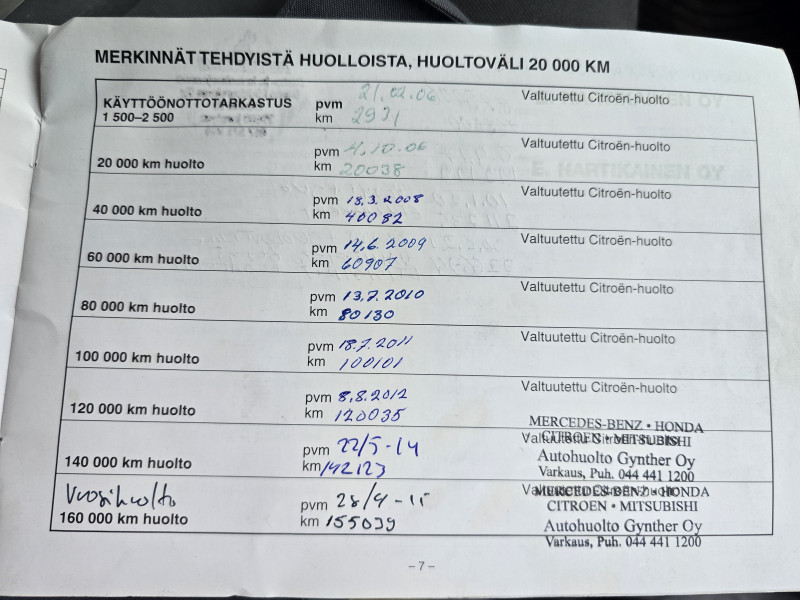 MERKINNÄT TEHDYISTÄ HUOLLOISTA, HUOLTOVÄLI 20 000 KM
KÄYTTÖÖNOTTOTARKASTUS pvm 21.02.06 Valtuutettu Citroën-huolto
1 500–2 500 km 2931
20 000 km huolto pvm 4.10.06 Valtuutettu Citroën-huolto
km 20038
E. HARTIKAINEN OY
40 000 km huolto pvm 18.3.2008 Valtuutettu Citroën-huolto
km 40082
60 000 km huolto pvm 14.6.2009 Valtuutettu Citroën-huolto
km 60907
80 000 km huolto pvm 13.7.2010 Valtuutettu Citroën-huolto
km 80130
100 000 km huolto pvm 18.7.2011 Valtuutettu Citroën-huolto
km 100101
120 000 km huolto pvm 8.8.2012 Valtuutettu Citroën-huolto
km 120035
MERCEDES-BENZ • HONDA
140 000 km huolto pvm 22/5-14 Valtuutettu Citroën-huolto
CITROEN • MITSUBISHI
km 142123 Autohuolto Gynther Oy
Varkaus, Puh. 044 441 1200
Vuosihuolto pvm 28/4-15 Valtuutettu Citroën-huolto
MERCEDES-BENZ • HONDA
CITROEN • MITSUBISHI
160 000 km huolto km 155039 Autohuolto Gynther Oy
Varkaus, Puh. 044 441 1200
– 7 –